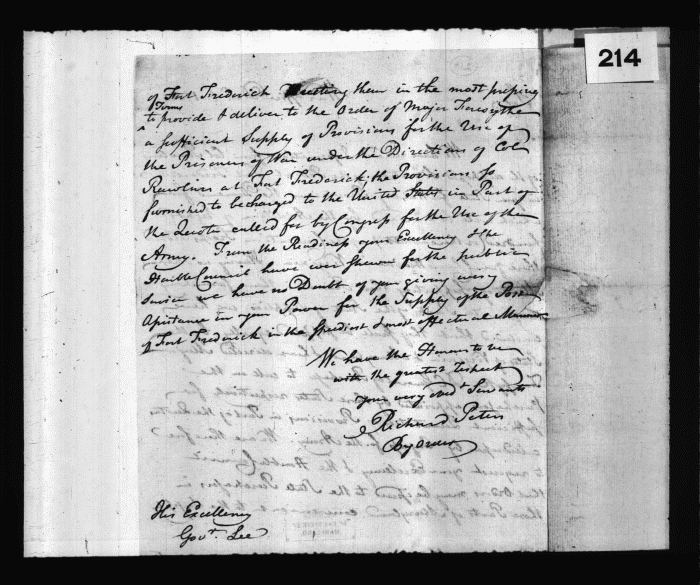 214
of Fort Frederick directing them in the most pressing
Terms
to provide & deliver to the Order of Major Forsythe
a sufficient Supply of Provisions for the Use of
the Prisoners of War under the Directions of Col
Rawlins at Fort Frederick; the Provisions so
furnished to be charged to the United States in Part of
the Quota called for by Congress for the Use of the
Army. From the Readiness your Excellency & the
Honble Council have ever shewn for the public
Service we have no Doubt of your giving every
Assistance in your Power for the Supply of the Post
of Fort Frederick in the speediest & most effectual Manner
We have the Honour to be
with the greatest respect
your very Obedt Servants
Richard Peters
By Order
His Excellency
Govr. Lee